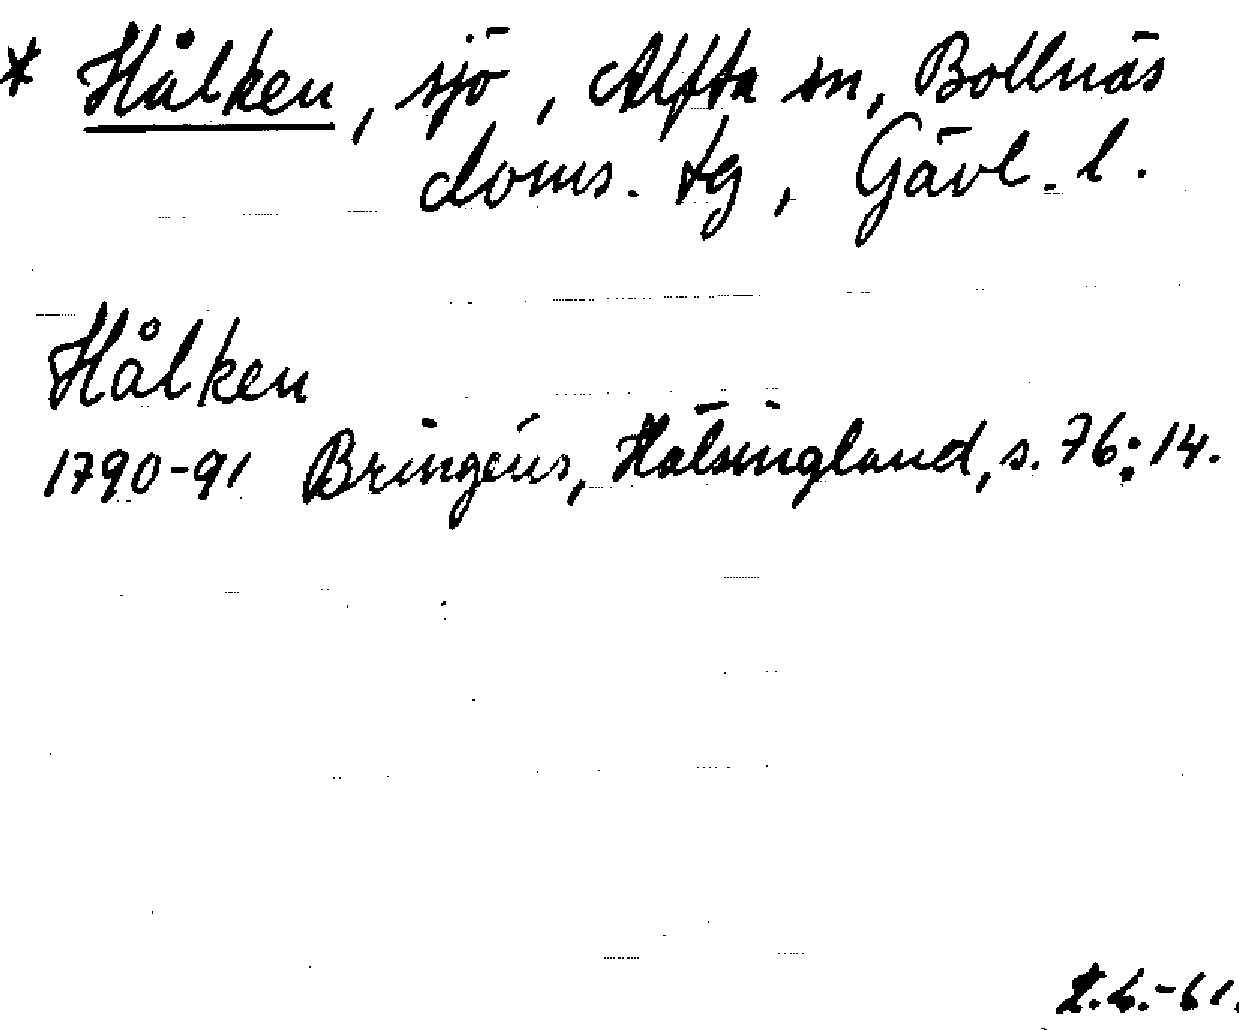 * Hålken, sjö, Alfta sn, Bollnäs
doms. tg, Gävl. l.
Hålken
1790-91 Bringéus, Hälsingland, s. 76:14.
-61.